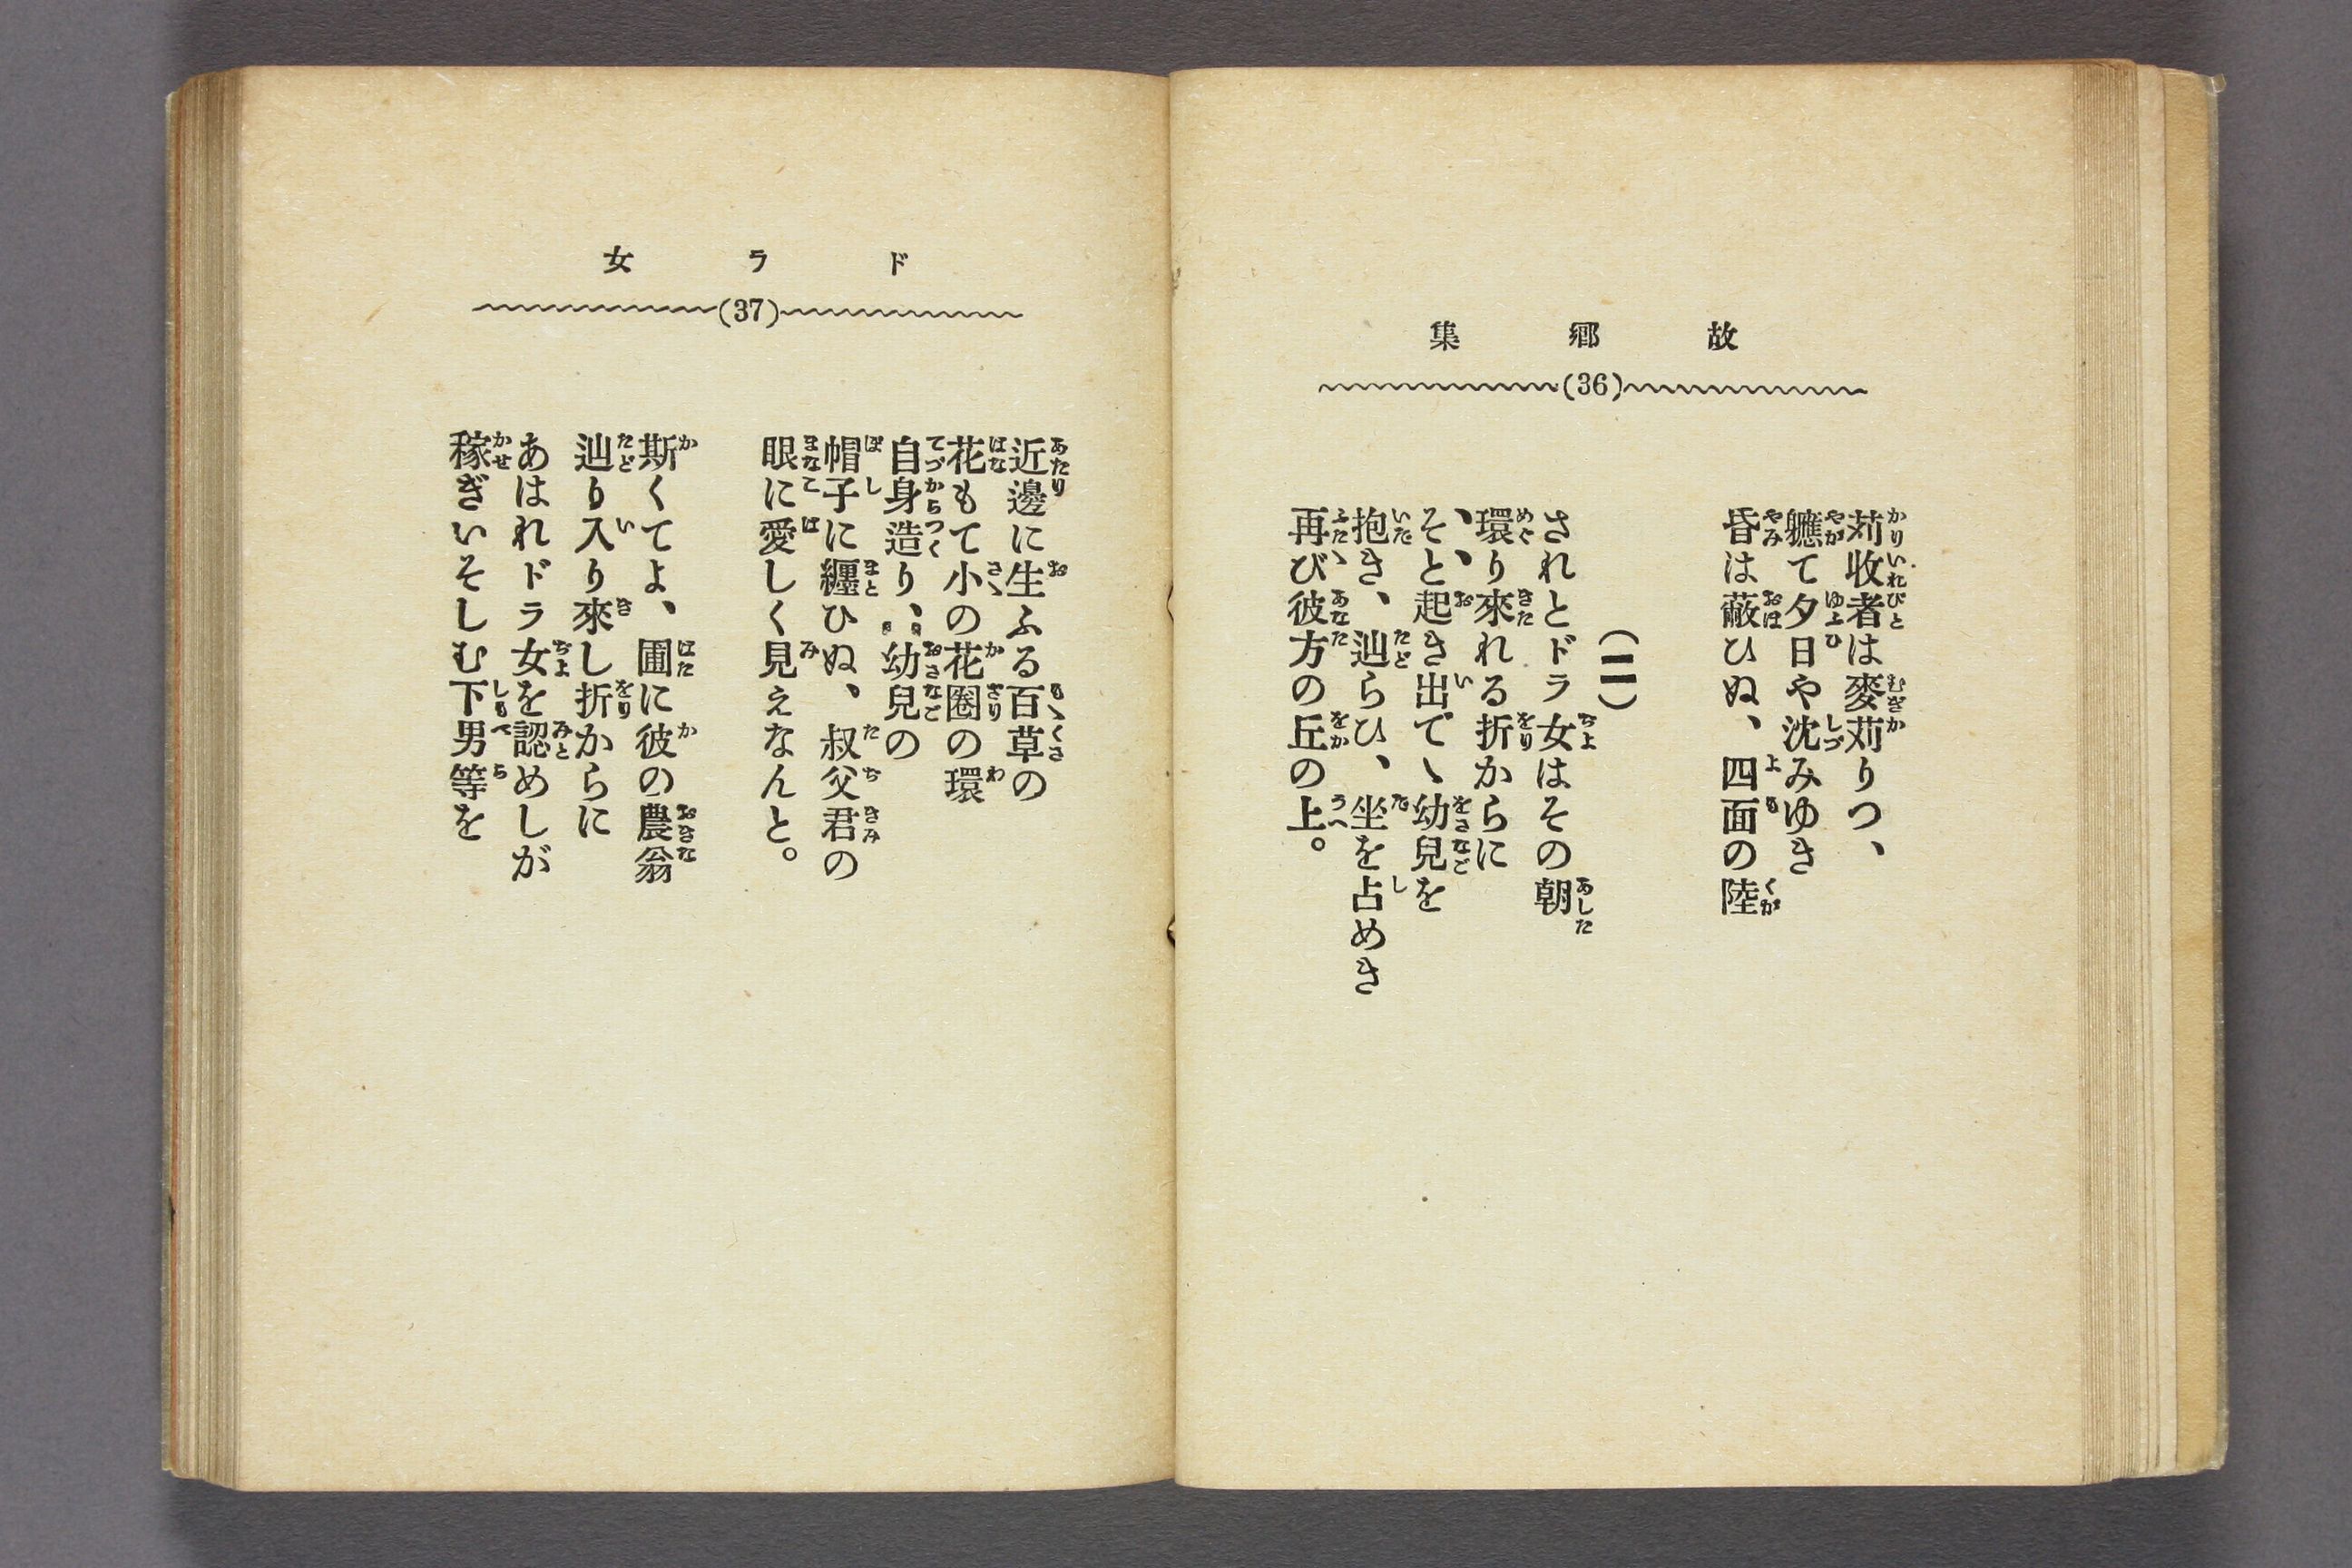 故郷集
(36)
苅收者は麥苅りつ、
軈て夕日や沈みゆき
昏は蔽ひぬ、四面の陸
(二)
されとドラ女はその朝
環り來れる折からに
、、そと起き出でゝ幼兒を
抱き、辿らひ、坐を占めき
再び彼方の丘の上。
ドラ女
(37)
近邊に生ふる百草の
花もて小の花圈の環
自身造り、幼兒の
帽子に纒ひぬ、叔父君の
眼に愛しく見えなんと。
斯くてよ、圃に彼の農翁
辿り入り來し折からに
あはれドラ女を認めしが
稼ぎいそしむ下男等を